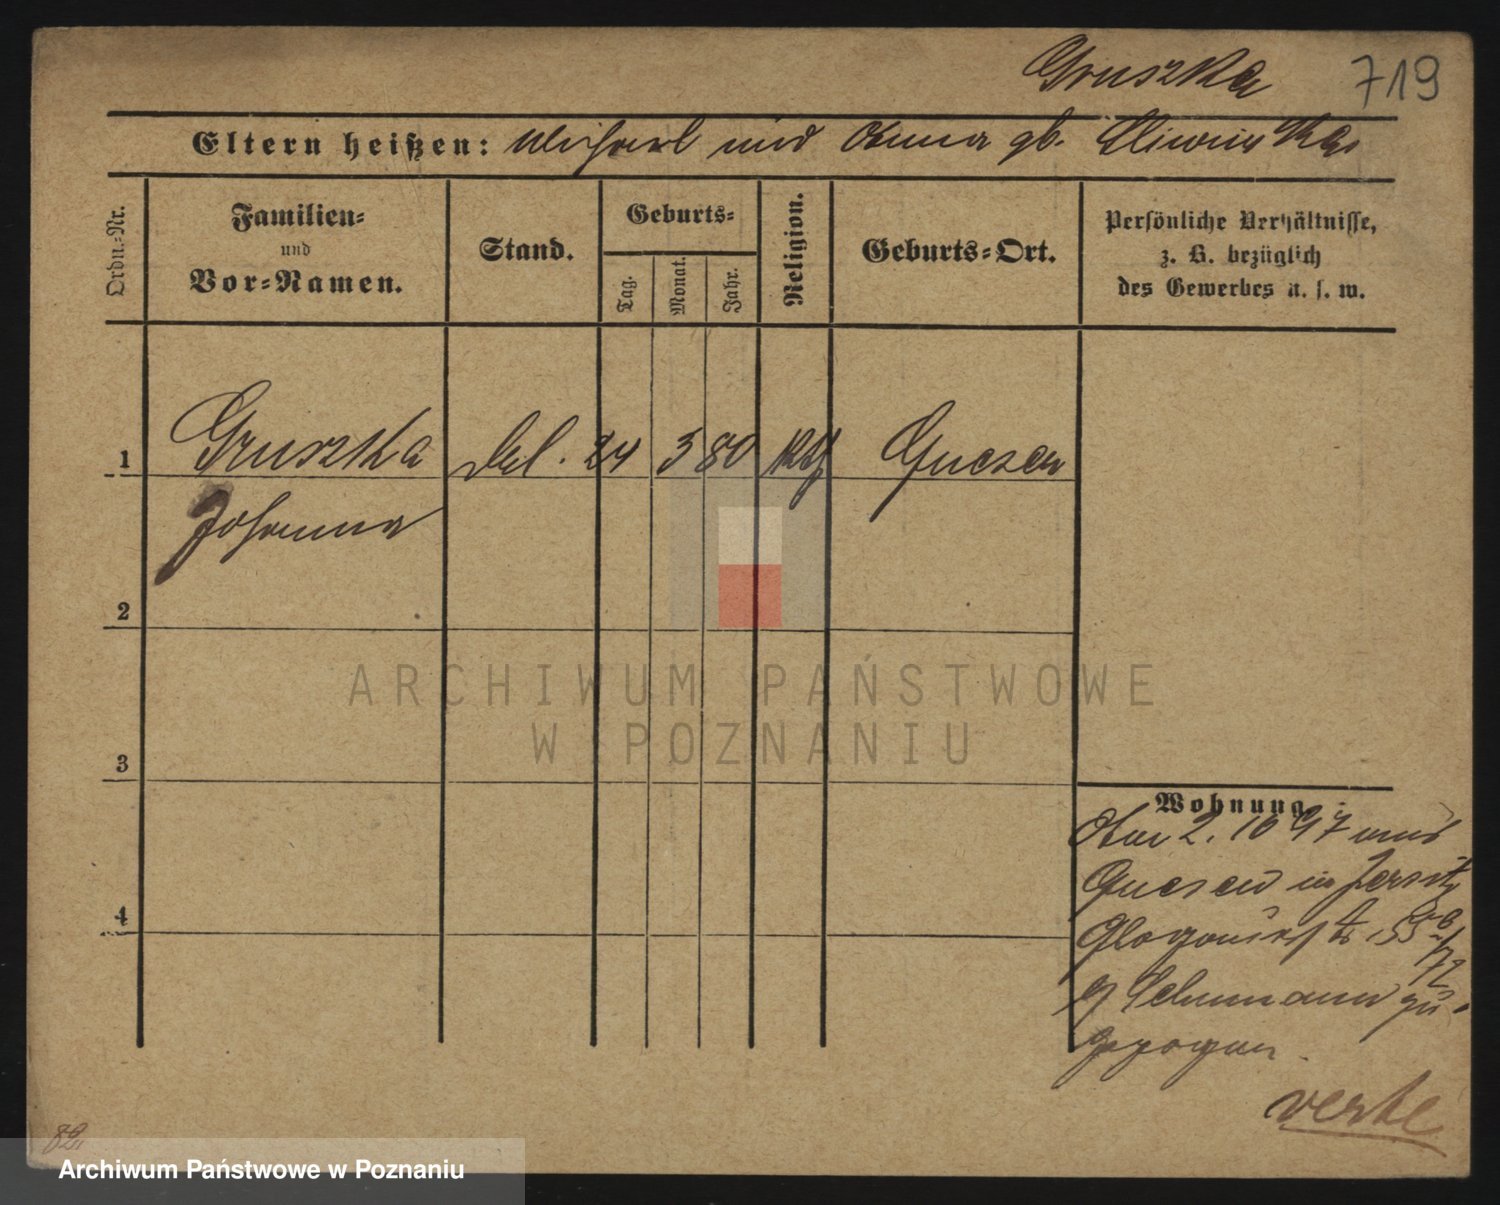 Gruszka 719
Eltern heißen: Michael und Anna gb. Sliwinska
Ordn.-Nr.
Familien-
und
Vor-Namen.
Stand.
Geburts-
Tag.
Monat.
Jahr.
Religion.
Geburts-Ort.
Persönliche Verhältnisse,
z. B. bezüglich
des Gewerbes u. s. w.
1 Gruszka led. 24 5 80 kth Gnesen
Johanna
2
3
4
ARCHIWUM PAŃSTWOWE
W POZNANIU
Wohnung.
Am 2. 10 97 aus
Gnesen in Jersitz
Glogauerstr 55
Schumann zu-
gezogen.
verte
82
Archiwum Państwowe w Poznaniu